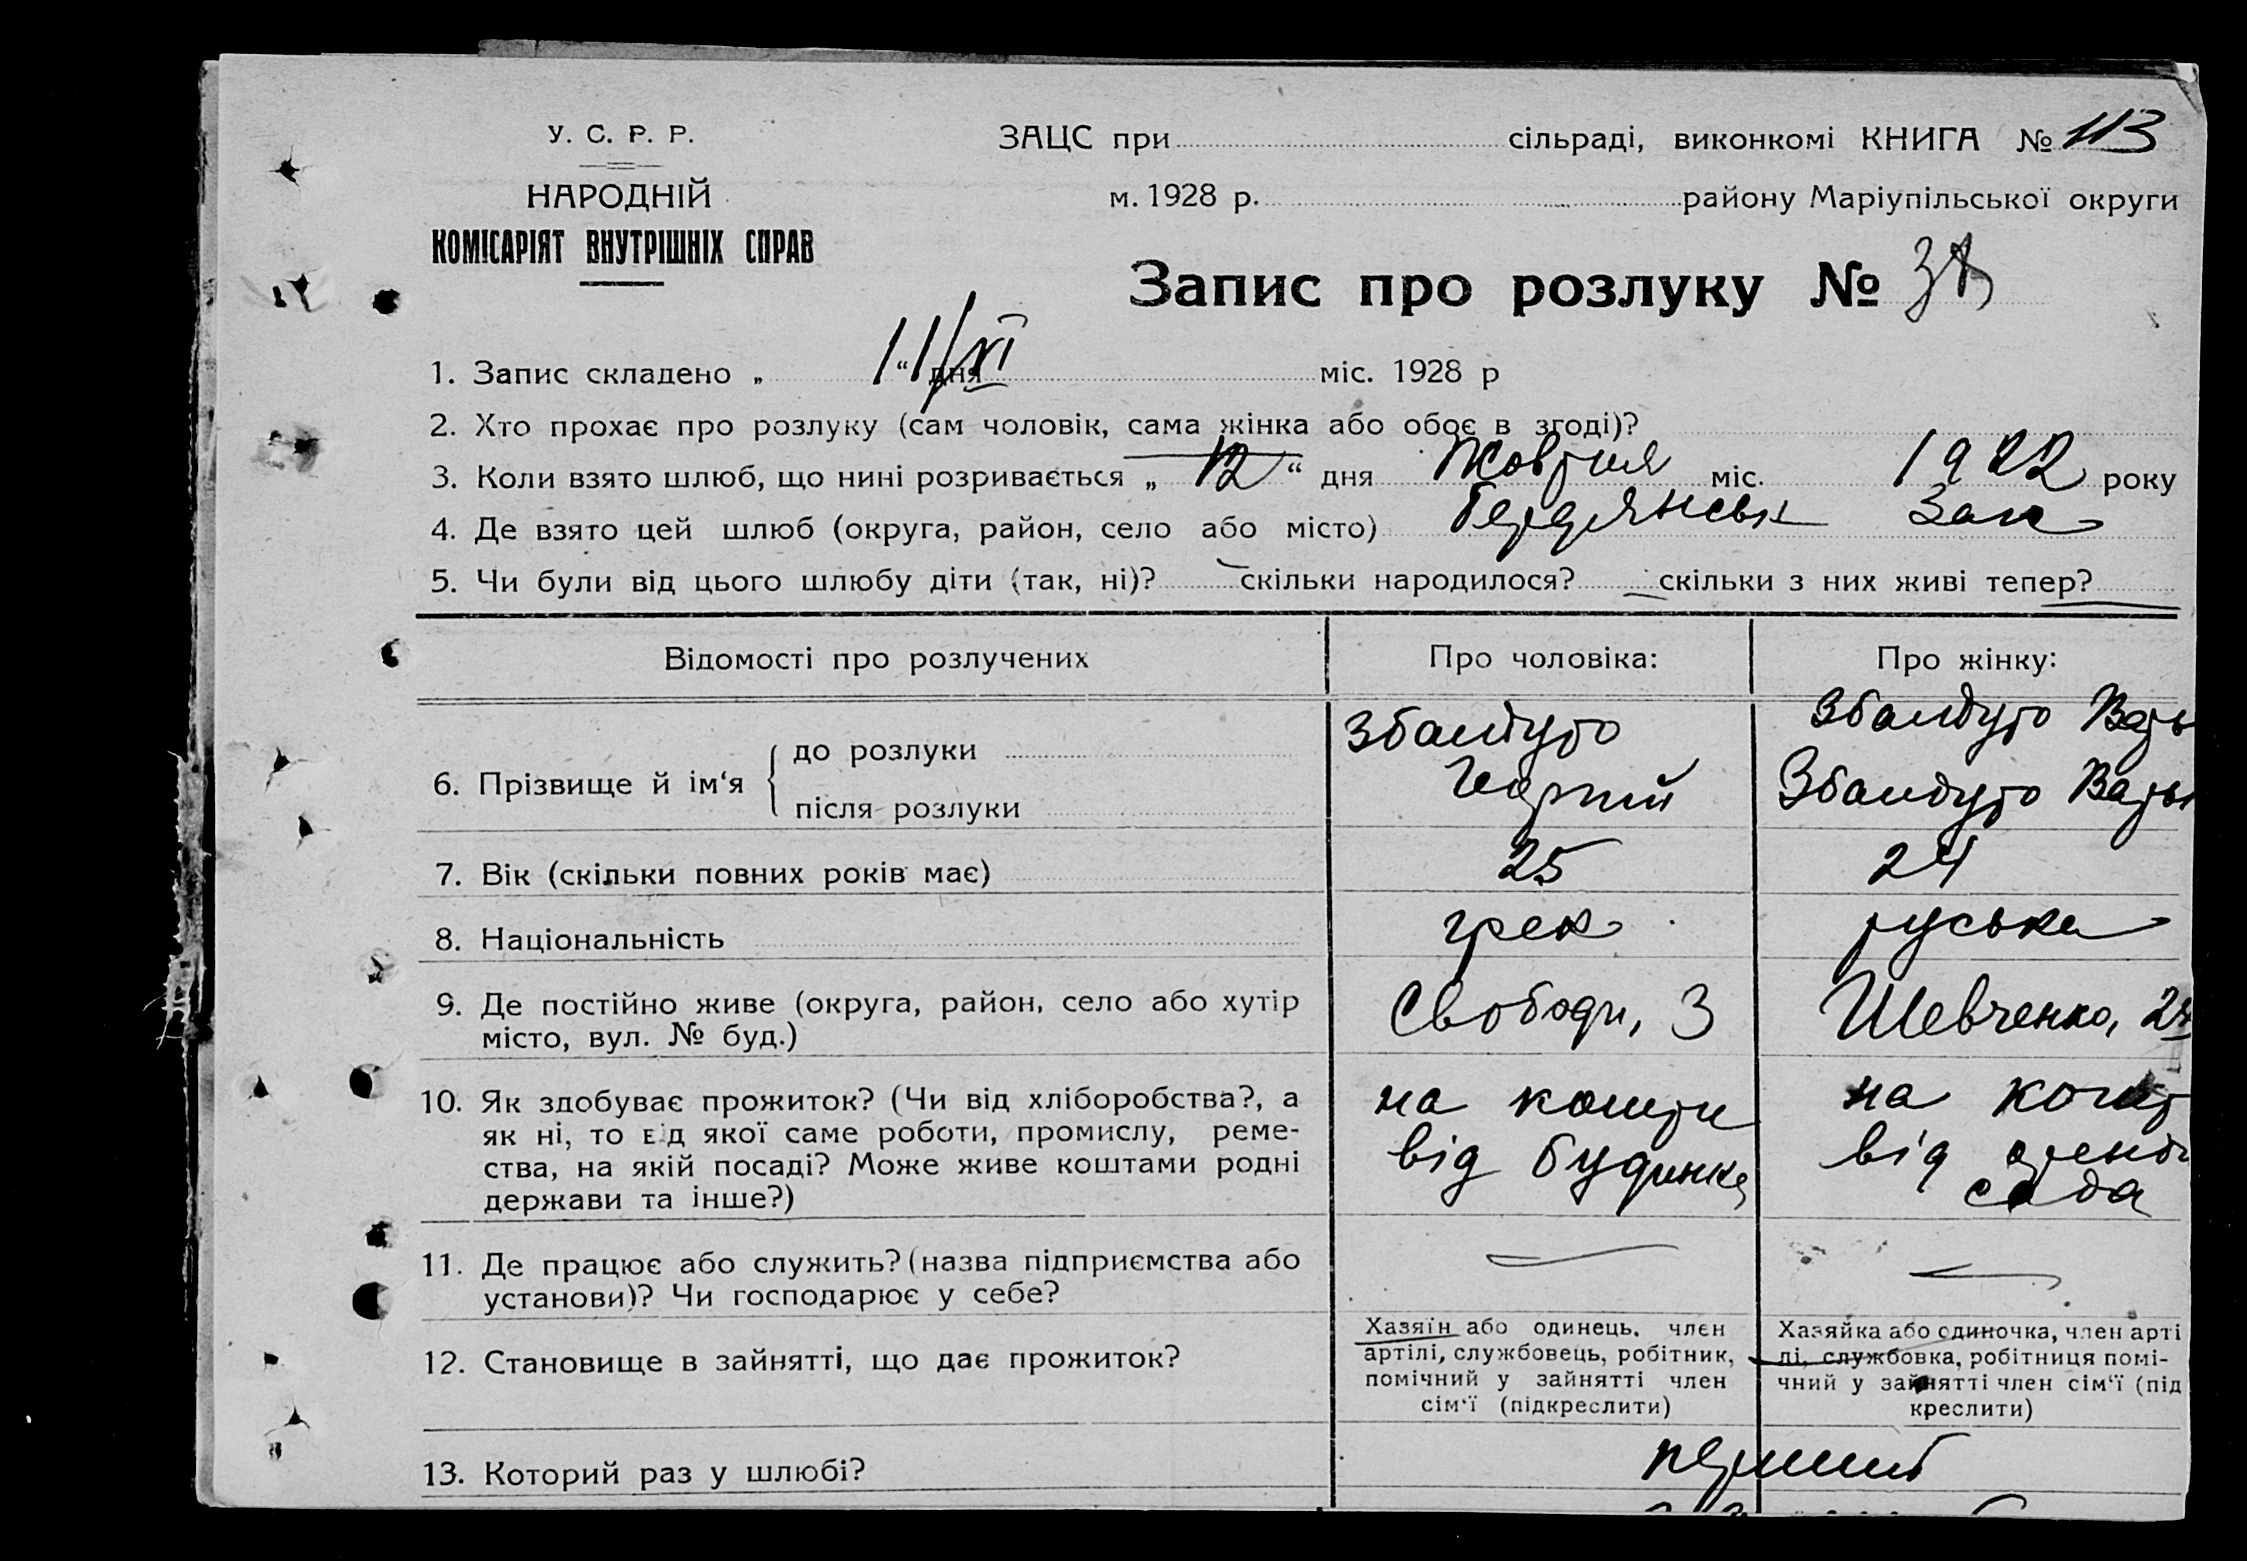 У. С. Р. Р.
НАРОДНІЙ
КОМІСАРІЯТ ВНУТРІШНІХ СПРАВ
ЗАЦС при сільраді, виконкомі КНИГА № 113
м. 1928 р. району Маріупільської округи
Запис про розлуку №
1. Запис складено „ 11/XI “ дня міс. 1928 р
2. Хто прохає про розлуку (сам чоловік, сама жінка або обоє в згоді)?
3. Коли взято шлюб, що нині розривається „ 12 “ дня Жовтня міс. 1922 року
4. Де взято цей шлюб (округа, район, село або місто) Бердянськ Заг
5. Чи були від цього шлюбу діти (так, ні)? скільки народилося? скільки з них живі тепер?
Відомості про розлучених
Про чоловіка:
Про жінку:
6. Прізвище й ім‘я
до розлуки
після розлуки
Збандуто
Георгій
Збандуто
Збандуто
7. Вік (скільки повних років має)
25
24
8. Національність
грек
руська
9. Де постійно живе (округа, район, село або хутір
місто, вул. № буд.)
Свободи, 3
Шевченко,
10. Як здобуває прожиток? (Чи від хліборобства?, а
як ні, то від якої саме роботи, промислу, реме-
ства, на якій посаді? Може живе коштами родні
держави та інше?)
на кошти
від будинка
на кошт
від
сада
11. Де працює або служить? (назва підприємства або
установи)? Чи господарює у себе?
12. Становище в зайнятті, що дає прожиток?
Хазяїн або одинець. член
артілі, службовець, робітник,
помічний у зайнятті член
сім‘ї (підкреслити)
Хазяйка або одиночка, член арті
лі, службовка, робітниця помі-
чний у зайнятті член сім‘ї (під
креслити)
13. Которий раз у шлюбі?
перший